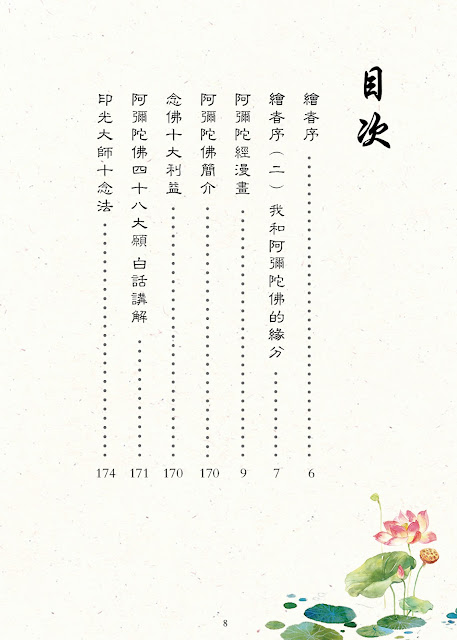 目次
繪者序 6
繪者序（二）我和阿彌陀佛的緣分 7
阿彌陀經漫畫 9
阿彌陀佛簡介 170
念佛十大利益 170
阿彌陀佛四十八大願 白話講解 171
印光大師十念法 174
8